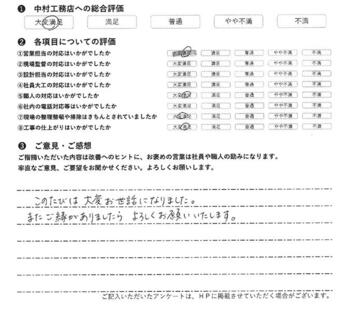 ❶ 中村工務店への総合評価
大変満足 満足 普通 やや不満 不満
❷ 各項目についての評価
①営業担当の対応はいかがでしたか 大変満足 満足 普通 やや不満 不満
②現場監督の対応はいかがでしたか 大変満足 満足 普通 やや不満 不満
③設計担当の対応はいかがでしたか 大変満足 満足 普通 やや不満 不満
④社員大工の対応はいかがでしたか 大変満足 満足 普通 やや不満 不満
⑤職人の対応はいかがでしたか 大変満足 満足 普通 やや不満 不満
⑥社内の電話対応等はいかがでしたか 大変満足 満足 普通 やや不満 不満
⑦現場の整理整頓や掃除はきちんとされていましたか 大変満足 満足 普通 やや不満 不満
⑧工事の仕上がりはいかがでしたか 大変満足 満足 普通 やや不満 不満
❸ ご意見・ご感想
ご指摘いただいた内容は改善へのヒントに、お褒めの言葉は社員や職人の励みになります。
率直なご意見、ご要望をお聞かせください。よろしくお願いします。
このたびは大変お世話になりました。
またご縁がありましたら よろしくお願いいたします。
ご記入いただいたアンケートは、HPに掲載させていただく場合がございます。